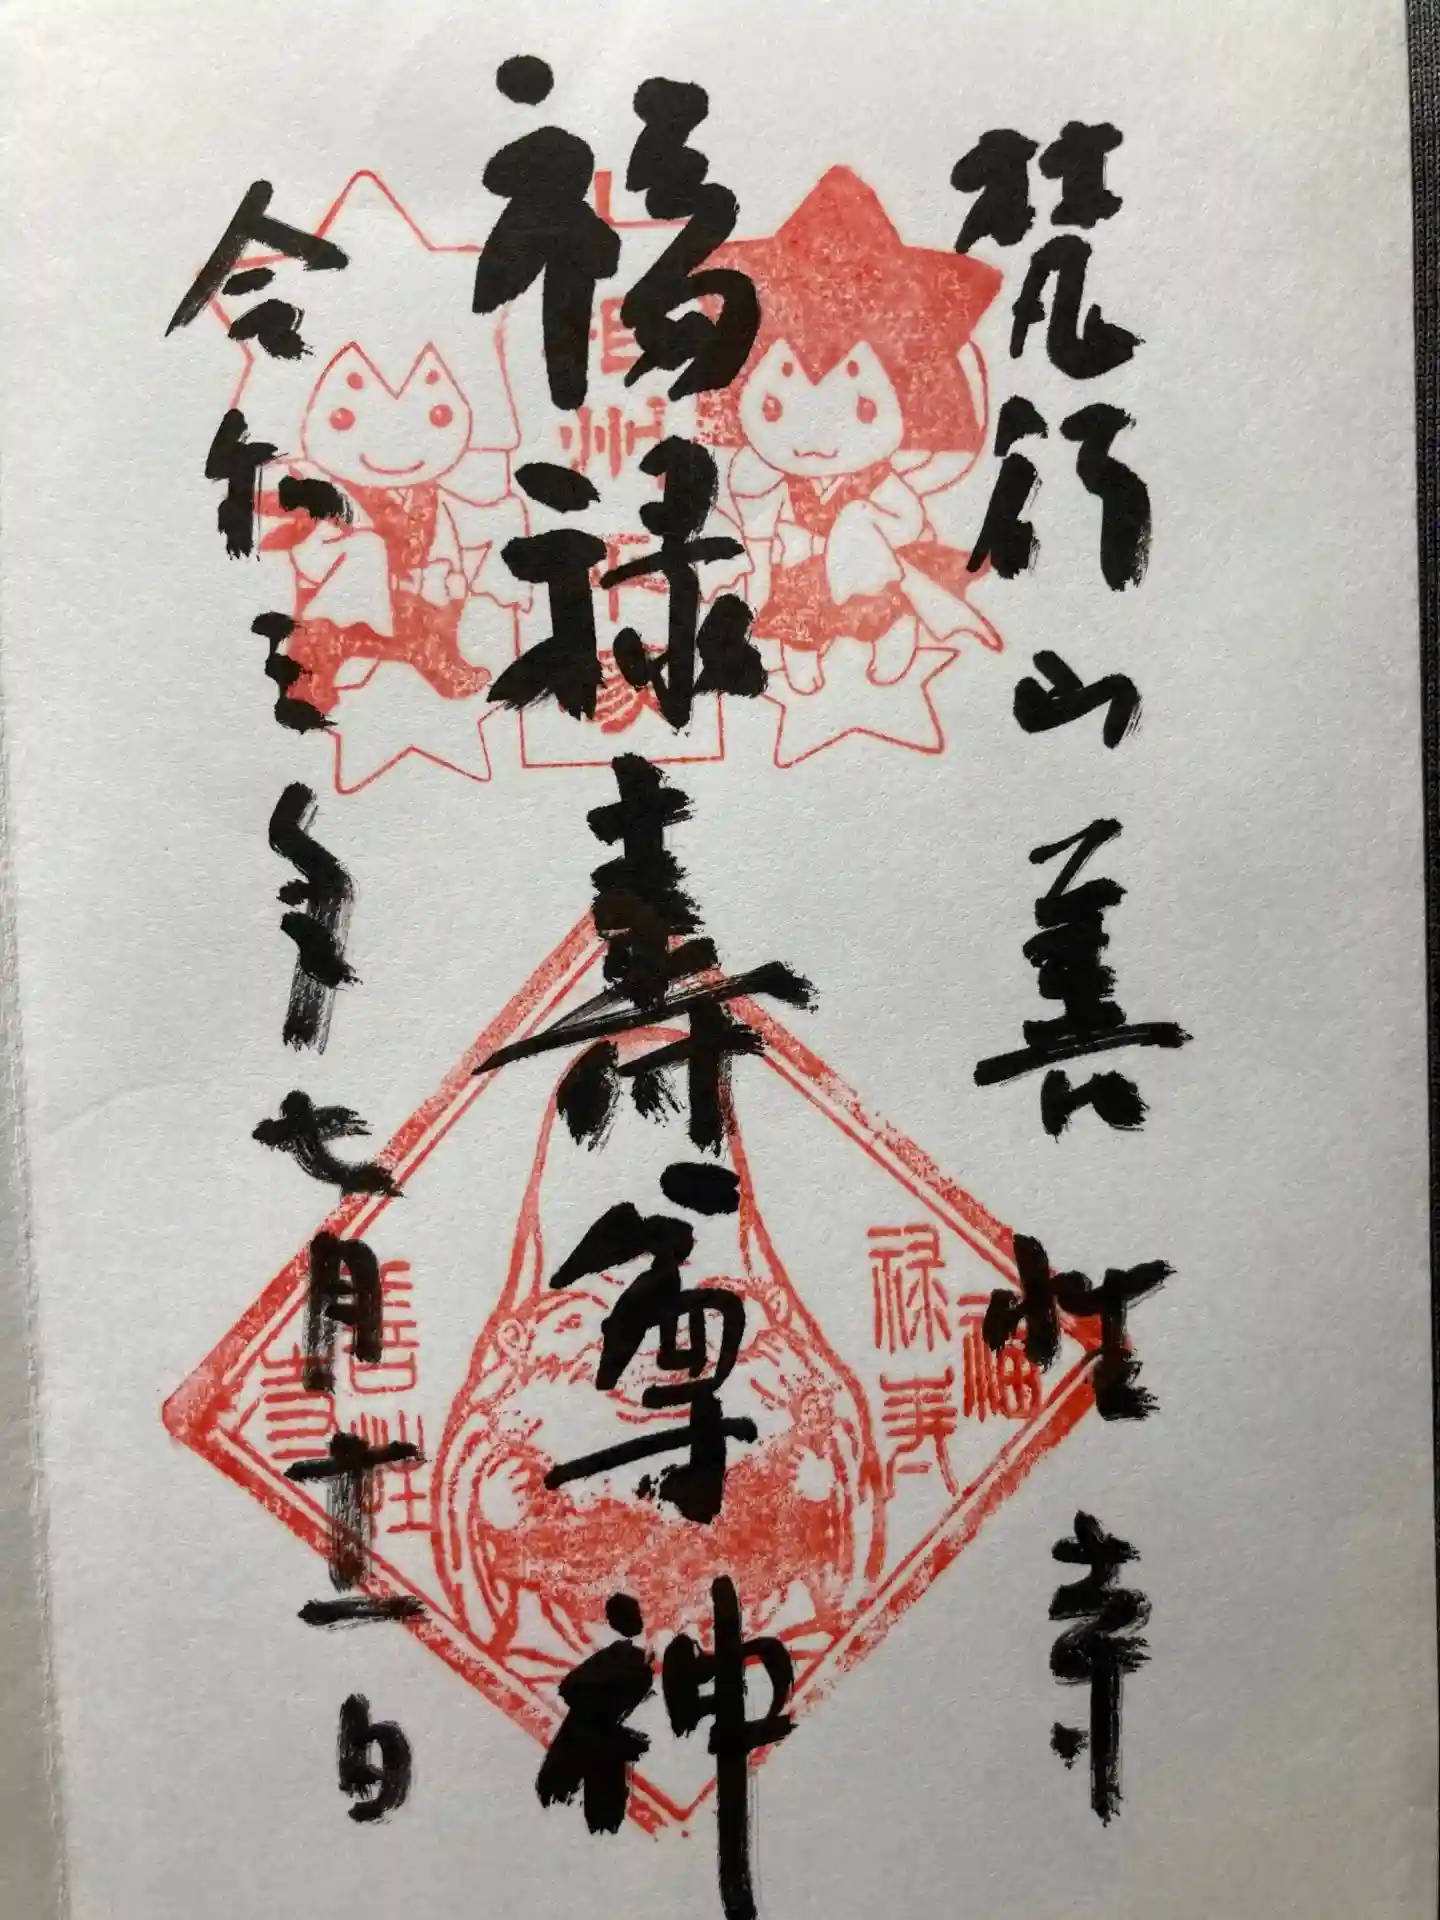 梵行山善性寺
福禄寿尊神
令和三年七月十一日
相州千葉
福
禄寿
善性
寺